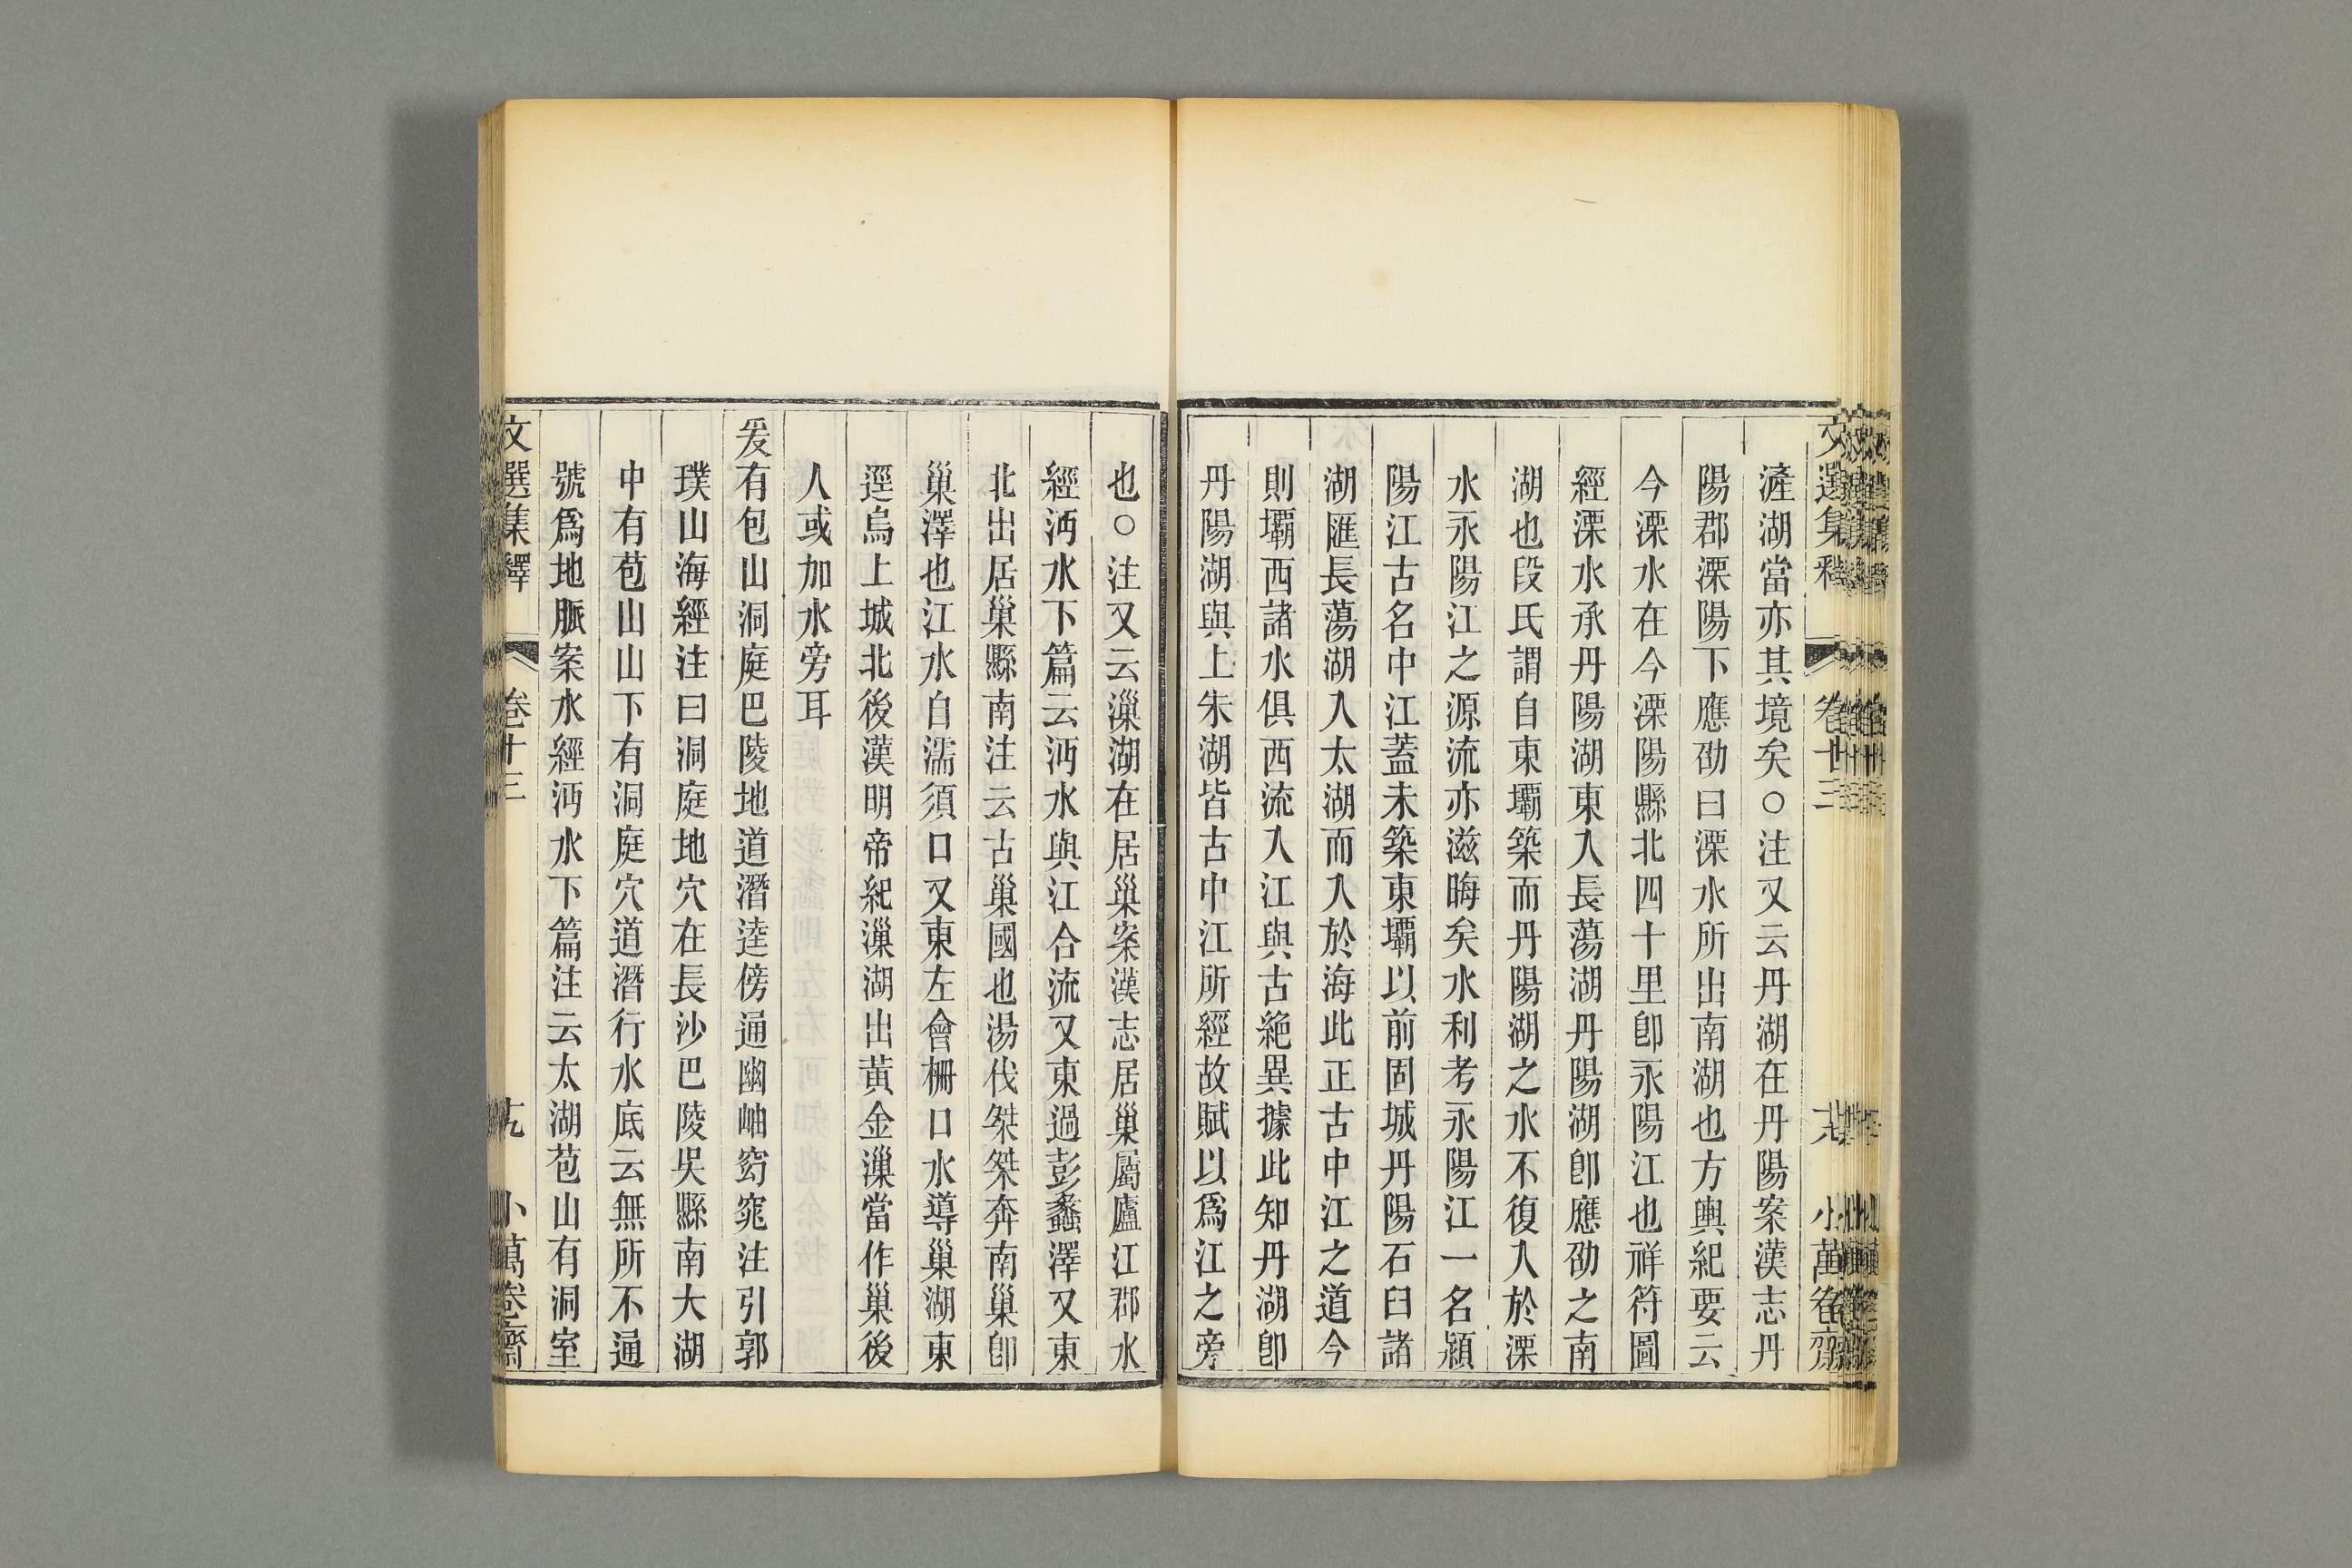 文選集釋 卷十三 十八 小萬卷齋
滻湖當亦其境矣○注又云丹湖在丹陽案漢志丹
陽郡溧陽下應劭曰溧水所出南湖也方輿紀要云
今溧水在今溧陽縣北四十里卽永陽江也祥符圖
經溧水承丹陽湖東入長蕩湖丹陽湖卽應劭之南
湖也段氏謂自東壩築而丹陽湖之水不復入於溧
水永陽江之源流亦滋晦矣水利考永陽江一名潁
陽江古名中江蓋未築東壩以前固城丹陽石臼諸
湖匯長蕩湖入太湖而入於海此正古中江之道今
則壩西諸水俱西流入江與古絕異據此知丹湖卽
丹陽湖與上朱湖皆古中江所經故賦以爲江之旁
也○注又云漅湖在居巢案漢志居巢屬廬江郡水
經沔水下篇云沔水與江合流又東過彭蠡澤又東
北出居巢縣南注云古巢國也湯伐桀桀奔南巢卽
巢澤也江水自濡須口又東左會柵口水導巢湖東
逕烏上城北後漢明帝紀漅湖出黃金漅當作巢後
人或加水旁耳
爰有包山洞庭巴陵地道潛逵傍通幽岫窈窕注引郭
璞山海經注曰洞庭地穴在長沙巴陵吳縣南大湖
中有苞山山下有洞庭穴道潛行水底云無所不通
號爲地脈案水經沔水下篇注云太湖苞山有洞室
文選集釋 卷十三 十九 小萬卷齋